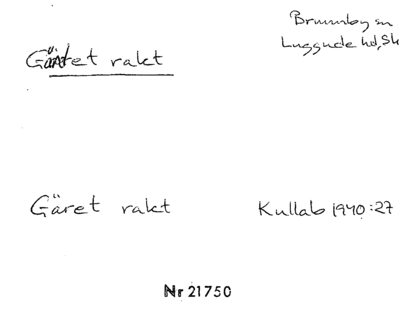 Gäret rakt
Brunnby sn
Luggude hd, Sk
Gäret rakt
Kullab 1940:27
Nr 21750